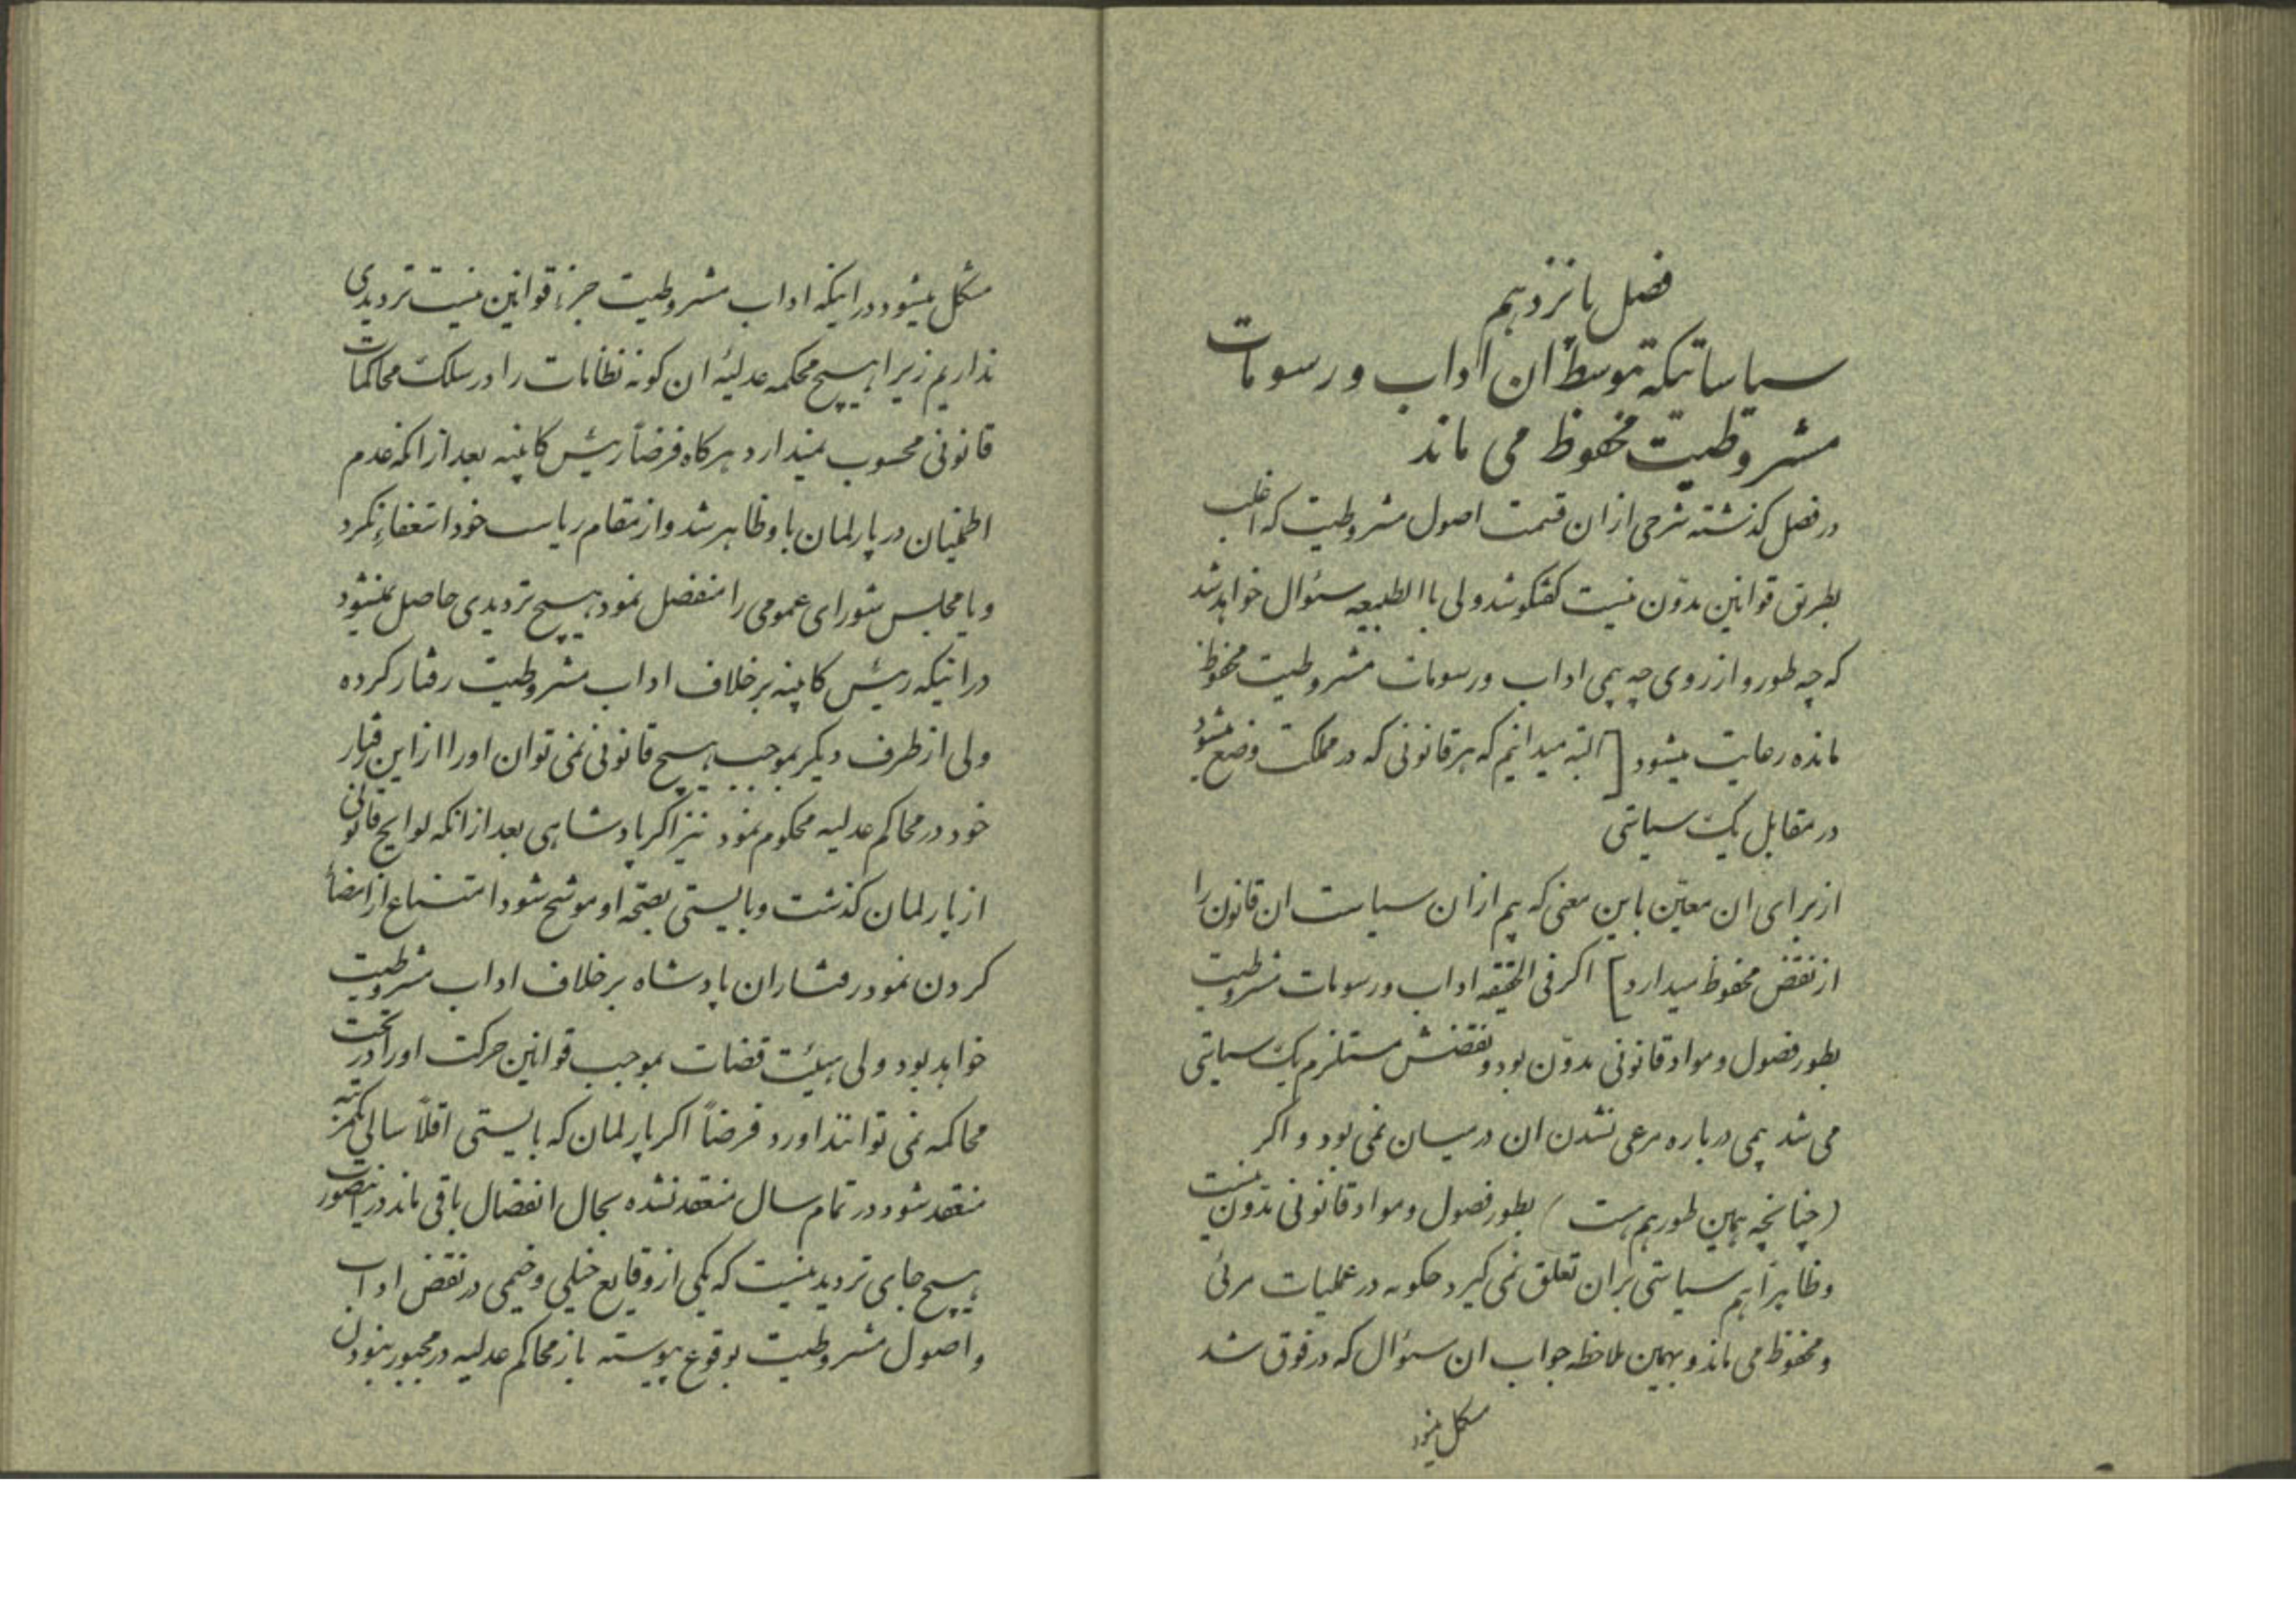 فصل پانزدهم
سیاساتیکه توسط ان اداب و رسومات
مشروطیت محفوظ می ماند
در فصل کذشته شرحی از ان قسمت اصول مشروطیت که اغلب
بطریق قوانین مدوّن نیست کفتکو شد ولی باالطبیعه سئوال خواهد شد
که چه طور و از روی چه بیمی اداب و رسومات مشروطیت محفوظ
مانده رعایت میشود [ البته میدانیم که هر قانونی که در مملکت وضع میشود
در مقابل یک سیاستی
از برای ان معیّن باین معنی که بیم از ان سیاست ان قانون را
از نقض محفوظ میدارد ] اکر فی الحقیقه اداب و رسومات مشروطیت
بطور فصول و مواد قانونی مدوّن بود و نقضش مستلزم یک سیاستی
می شد بیمی درباره مرعی نشدن ان در میان نمی بود و اکر
(چنانچه همین طور هم هست) بطور فصول و مواد قانونی مدوّن نیست
و ظاهراً هم سیاستی بر ان تعلق نمی کیرد چکونه در عملیات مرئی
و محفوظ می ماند و بهمین ملاحظه جواب ان سئوال که در فوق شد
مشکل میشود
مشکل میشود در اینکه اداب مشروطیت جزء قوانین نیست تردیدی
نداریم زیرا هیچ محکمه عدلیهٔ ان کونه نظامات را در سلک محاکمات
قانونی محسوب نمیدارد هرکاه فرضاً رئیس کابینه بعد از انکه عدم
اطمینان در پارلمان باو ظاهر شد و از مقام ریاست خود استعفاء نکرد
و یا مجلس شورای عمومی را منفصل نمود هیچ تردیدی حاصل نمیشود
در اینکه رئیس کابینه برخلاف اداب مشروطیت رفتار کرده
ولی از طرف دیکر بموجب هیچ قانونی نمی توان او را از این رفتار
خود در محاکم عدلیه محکوم نمود نیز اکر پادشاهی بعد از انکه لوایح قانونی
از پارلمان کذشت و بایستی بصحّه او موشح شود امتناع از امضاء
کردن نمود رفتار ان پادشاه برخلاف اداب مشروطیت
خواهد بود ولی هیئت قضات بموجب قوانین حرکت او را در تحت
محاکمه نمی توانند اورد فرضاً اکر پارلمان که بایستی اقلاً سالی یکمرتبه
منعقد شود در تمام سال منعقد نشده بحال انفصال باقی ماند در اینصورت
هیچ جای تردید نیست که یکی از وقایع خیلی وخیمی در نقض اداب
و اصول مشروطیت بوقوع پیوسته باز محاکم عدلیه در مجبور نمودن